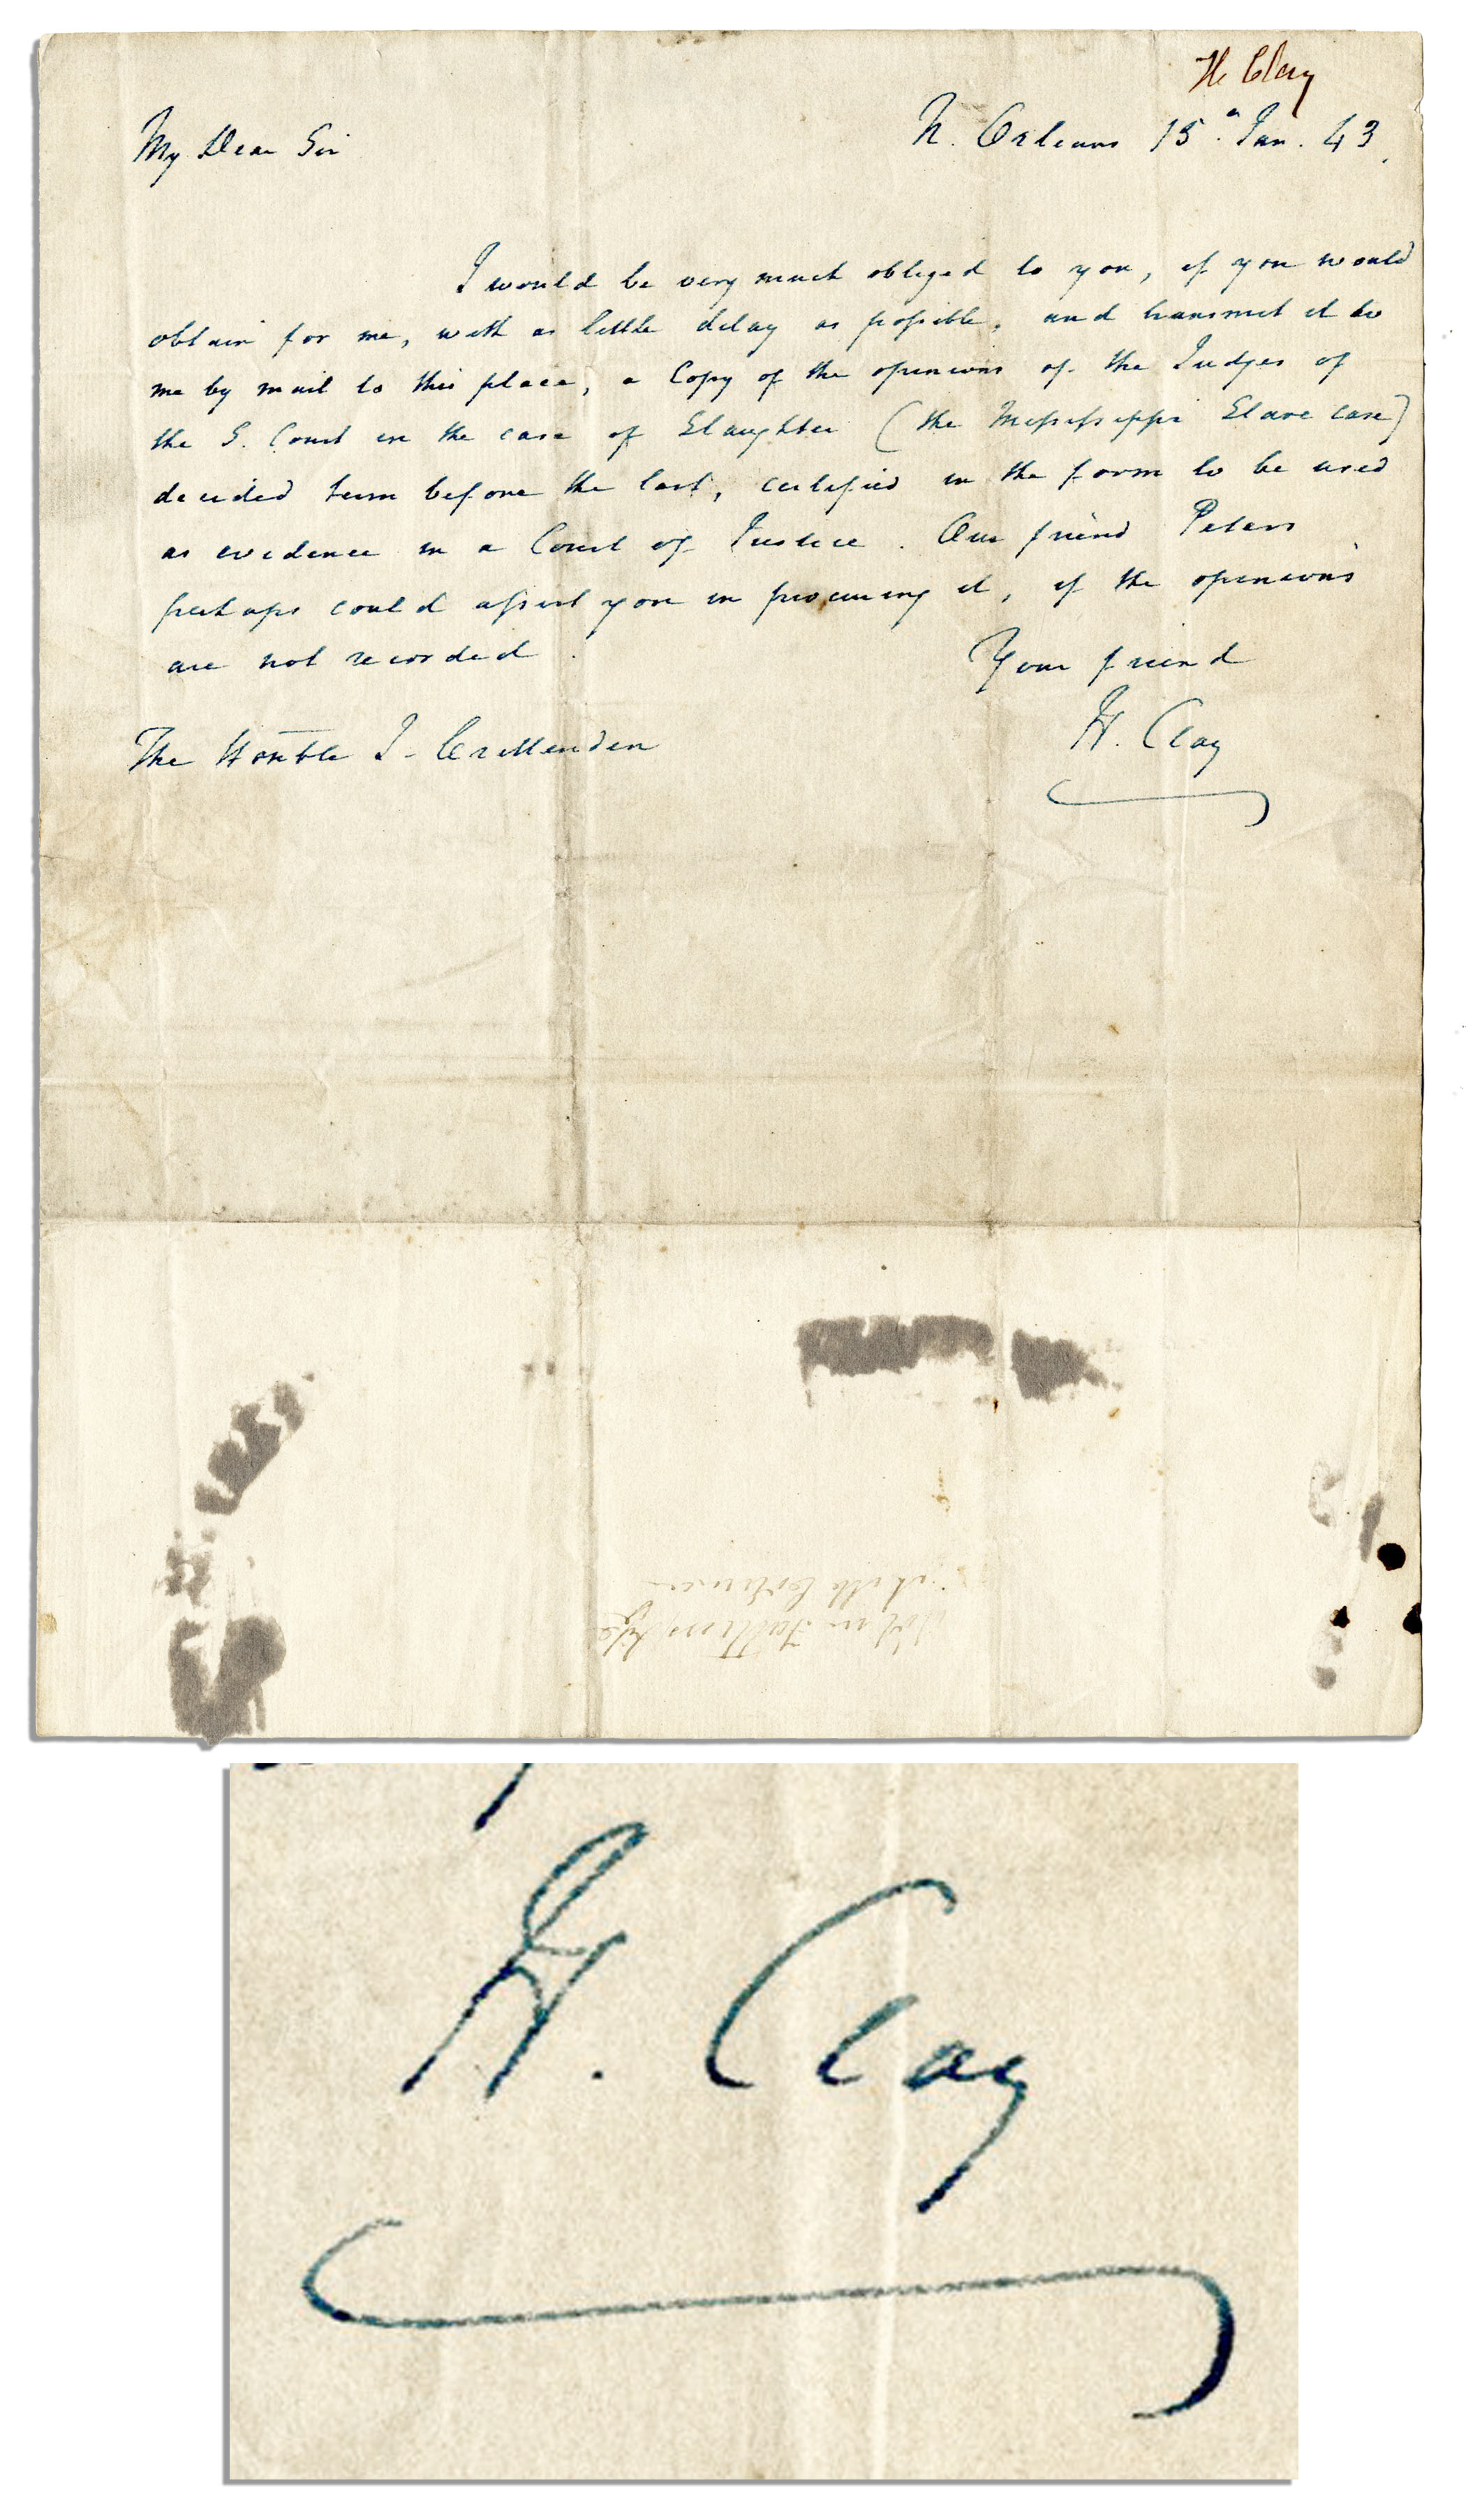 H Clay
My Dear Sir
N. Orleans 15h Jan. 43.
I would be very much obliged to you, if you would
obtain for me, with as little delay as possible, and transmit it to
me by mail to this place, a Copy of the opinions of the Judges of
the S. Court in the case of Slaughter (the Mississippi Slave case)
decided term before the last, certified in the form to be used
as evidence in a Court of Justice. Our friend Peters
perhaps could assist you in procuring it, if the opinions
are not recorded.
Your friend
H. Clay
The Honble J. Crittenden
H. Clay